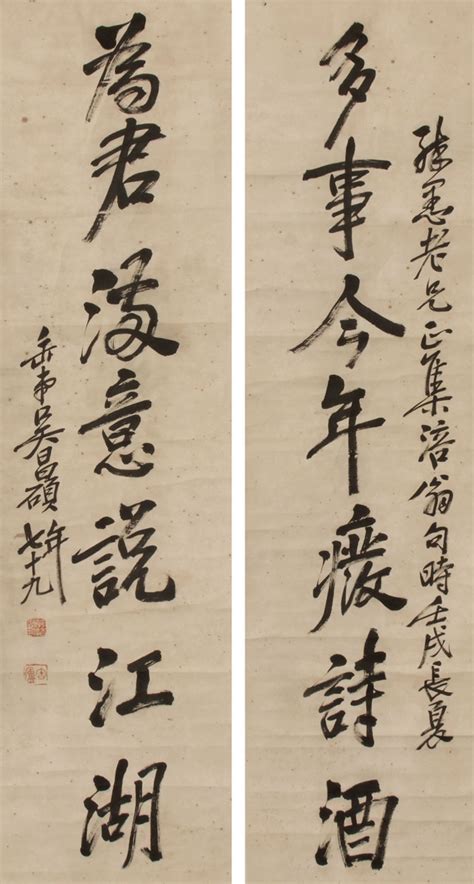 老兄正集涪翁句時壬戌長夏
多事今年癈詩酒
為君滿意說江湖
吳昌碩年七十九